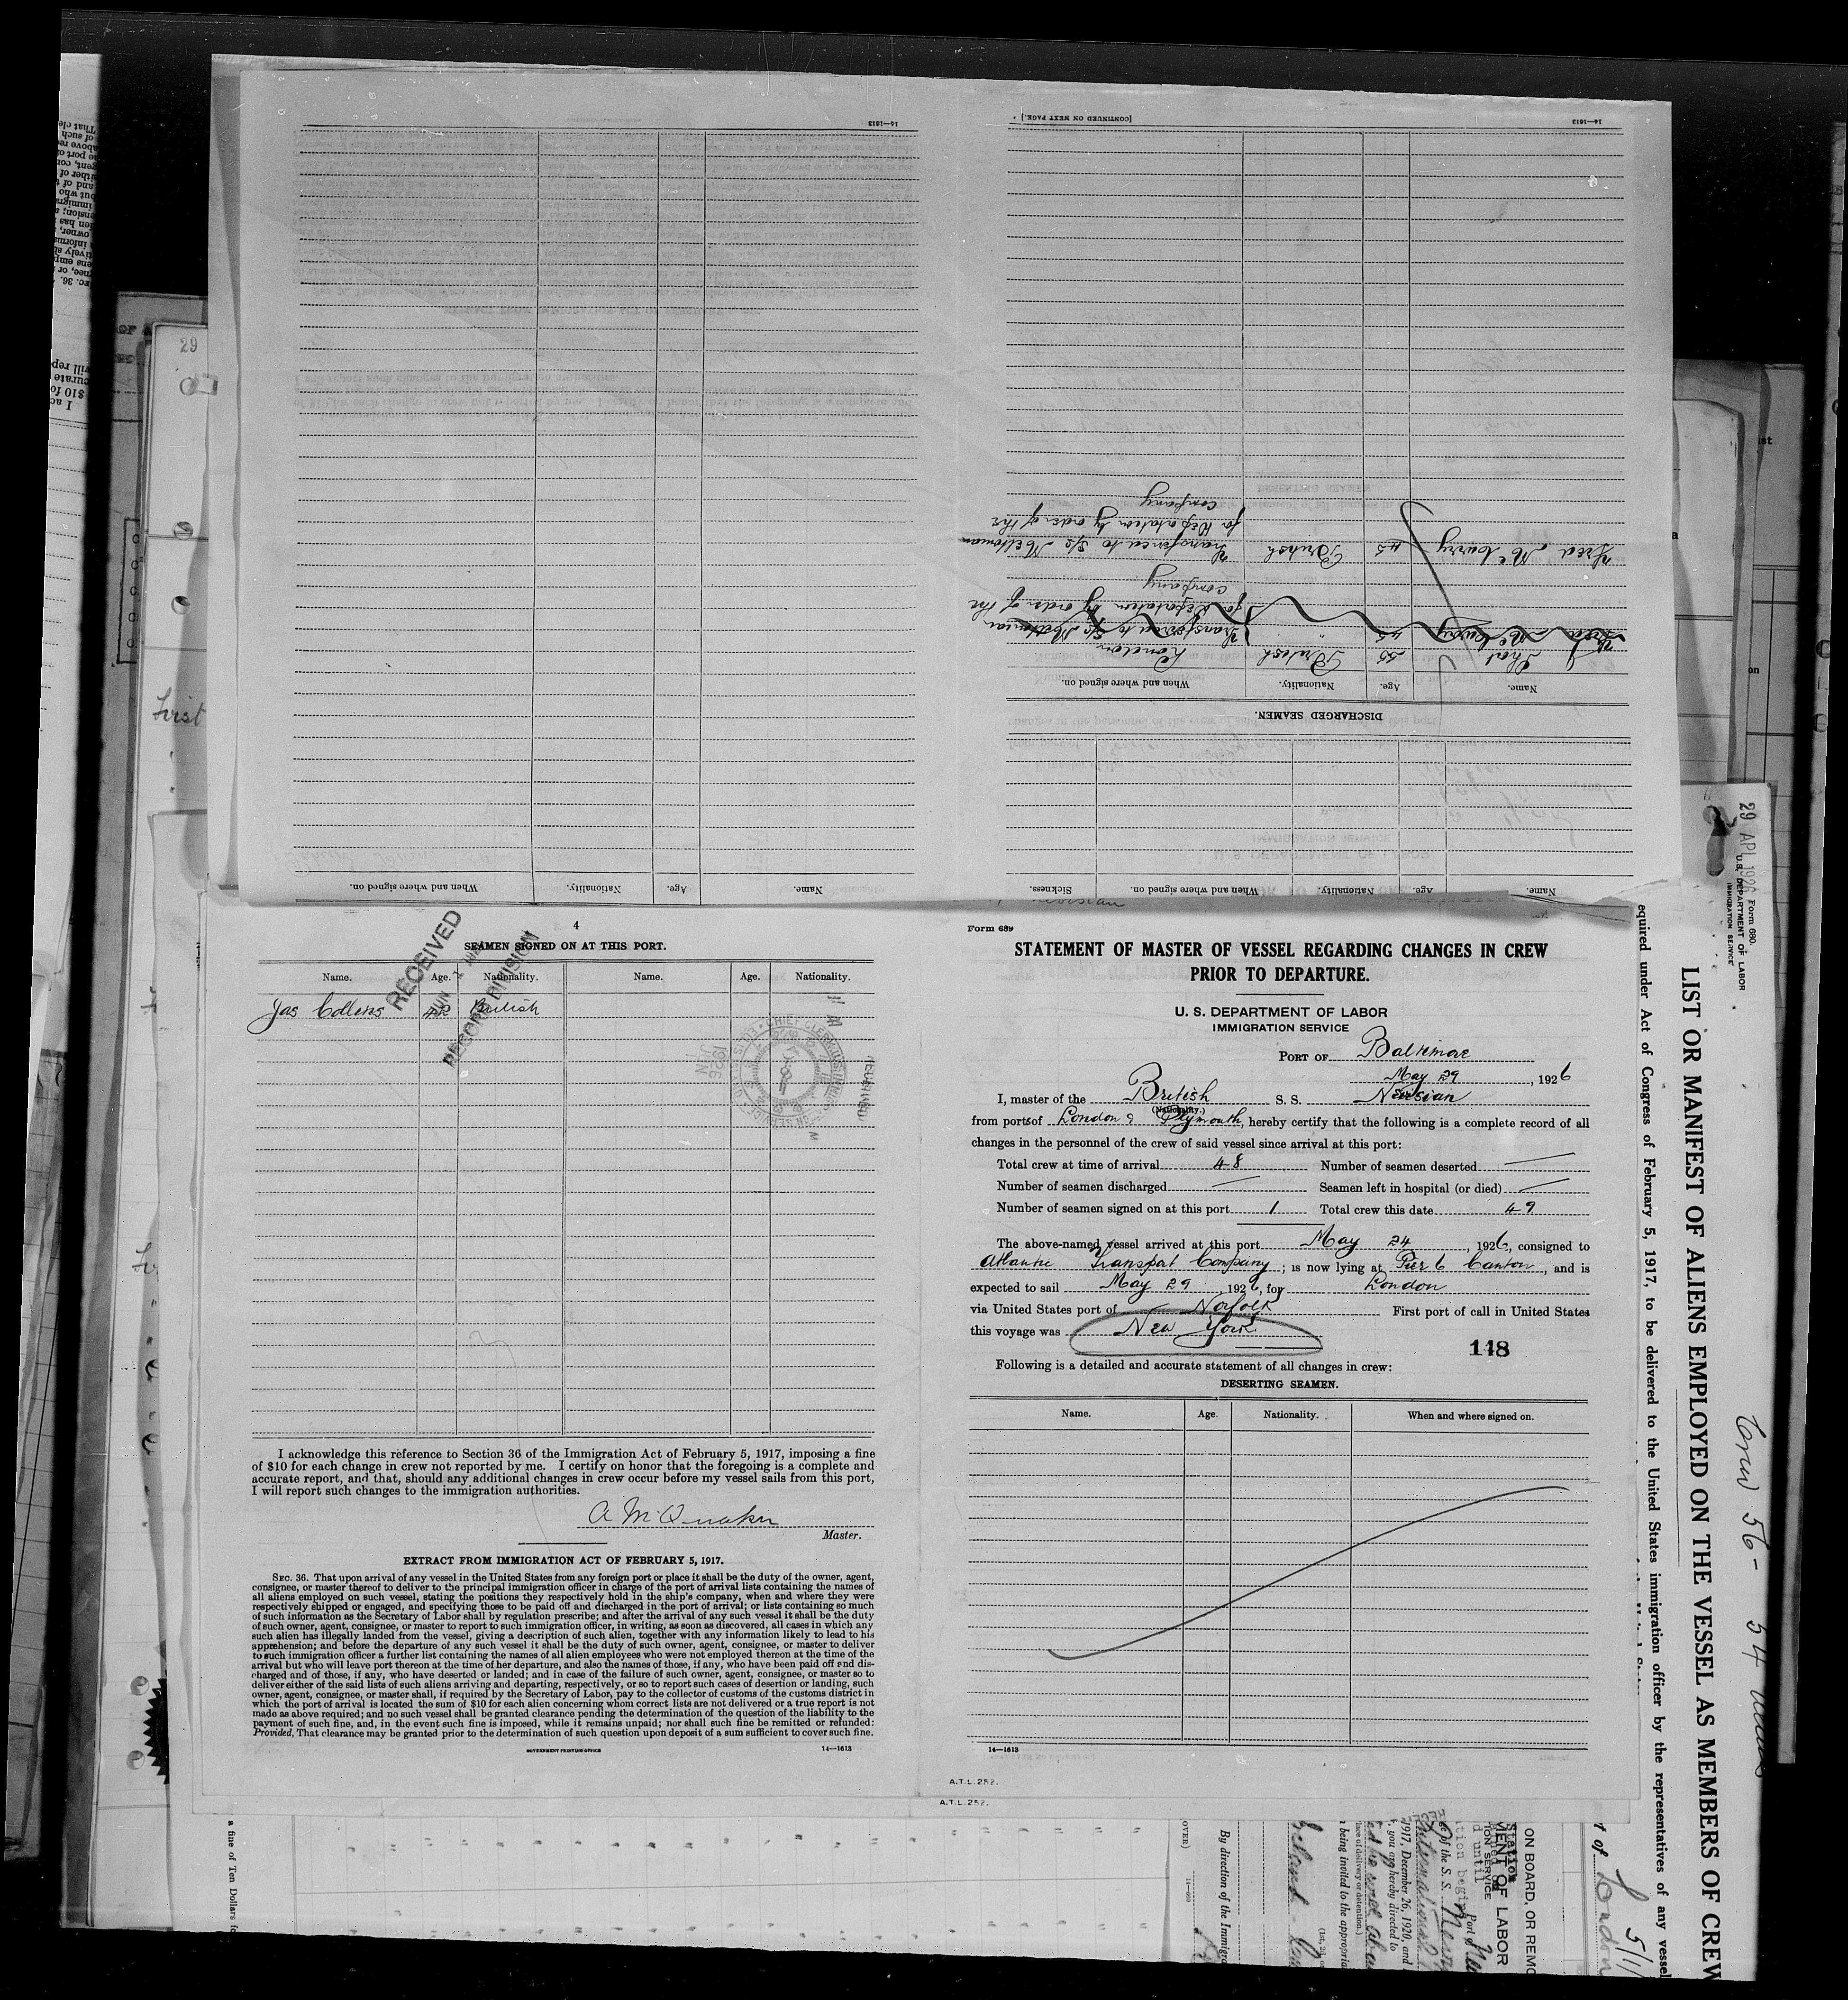 14—1613
Name.
Age.
Nationality.
When and where signed on.
[CONTINUED ON NEXT PAGE.]
14—1613
Name.
Age.
Nationality.
When and where signed on.
Sickness.
DISCHARGED SEAMEN.
Name.
Age.
Nationality.
When and where signed on.
55
British
London
45
Transferred to S/S
for Repatation by order of the
company
Fred McCurry
45
British
Transferred to S/S
for Repatation by order of the
company
4
SEAMEN SIGNED ON AT THIS PORT.
Name.
Age.
Nationality.
Name.
Age.
Nationality.
Jas Collens
British
RECEIVED
RECORD DIVISION
I acknowledge this reference to Section 36 of the Immigration Act of February 5, 1917, imposing a fine
of $10 for each change in crew not reported by me. I certify on honor that the foregoing is a complete and
accurate report, and that, should any additional changes in crew occur before my vessel sails from this port,
I will report such changes to the immigration authorities.
Master.
EXTRACT FROM IMMIGRATION ACT OF FEBRUARY 5, 1917.
SEC. 36. That upon arrival of any vessel in the United States from any foreign port or place it shall be the duty of the owner, agent,
consignee, or master thereof to deliver to the principal immigration officer in charge of the port of arrival lists containing the names of
all aliens employed on such vessel, stating the positions they respectively hold in the ship's company, when and where they were
respectively shipped or engaged, and specifying those to be paid off and discharged in the port of arrival; or lists containing so much
of such information as the Secretary of Labor shall by regulation prescribe; and after the arrival of any such vessel it shall be the duty
of such owner, agent, consignee, or master to report to such immigration officer, in writing, as soon as discovered, all cases in which any
such alien has illegally landed from the vessel, giving a description of such alien, together with any information likely to lead to his
apprehension; and before the departure of any such vessel it shall be the duty of such owner, agent, consignee, or master to deliver
to such immigration officer a further list containing the names of all alien employees who were not employed thereon at the time of the
arrival but who will leave port thereon at the time of her departure, and also the names of those, if any, who have been paid off and dis-
charged and of those, if any, who have deserted or landed; and in case of the failure of such owner, agent, consignee, or master so to
deliver either of the said lists of such aliens arriving and departing, respectively, or so to report such cases of desertion or landing, such
owner, agent, consignee, or master shall, if required by the Secretary of Labor, pay to the collector of customs of the customs district in
which the port of arrival is located the sum of $10 for each alien concerning whom correct lists are not delivered or a true report is not
made as above required; and no such vessel shall be granted clearance pending the determination of the question of the liability to the
payment of such fine, and, in the event such fine is imposed, while it remains unpaid; nor shall such fine be remitted or refunded:
Provided, That clearance may be granted prior to the determination of such question upon deposit of a sum sufficient to cover such fine.
GOVERNMENT PRINTING OFFICE
14—1613
Form 689
STATEMENT OF MASTER OF VESSEL REGARDING CHANGES IN CREW
PRIOR TO DEPARTURE.
U. S. DEPARTMENT OF LABOR
IMMIGRATION SERVICE
PORT OF Baltimore
May 29, 1926
I, master of the British S. S. Nevisian
(Nationality.)
from ports of London & Plymouth, hereby certify that the following is a complete record of all
changes in the personnel of the crew of said vessel since arrival at this port:
Total crew at time of arrival 48 Number of seamen deserted —
Number of seamen discharged — Seamen left in hospital (or died) —
Number of seamen signed on at this port 1 Total crew this date 49
The above-named vessel arrived at this port May 24, 1926, consigned to
Atlantic Transport Company; is now lying at Pier 6 Canton, and is
expected to sail May 29 1926, for London
via United States port of Norfolk First port of call in United States
this voyage was New York
148
Following is a detailed and accurate statement of all changes in crew:
DESERTING SEAMEN.
Name.
Age.
Nationality.
When and where signed on.
14—1613
A.T.L.252.
A.T.L.252.
29 1926
Form 680.
U.S. DEPARTMENT OF LABOR
IMMIGRATION SERVICE
LIST OR MANIFEST OF ALIENS EMPLOYED ON THE VESSEL AS MEMBERS OF CREW
equired under Act of Congress of February 5, 1917, to be delivered to the United States immigration officer by the representatives of any vessel
Crew 56 - 54
London
29
First
a fine of Ten Dollars
By direction of the Immigra
ON BOARD, OR REMO
MENT OF LABOR
1917, December 26, 1920, and
you are hereby directed to
being invited to the appropria